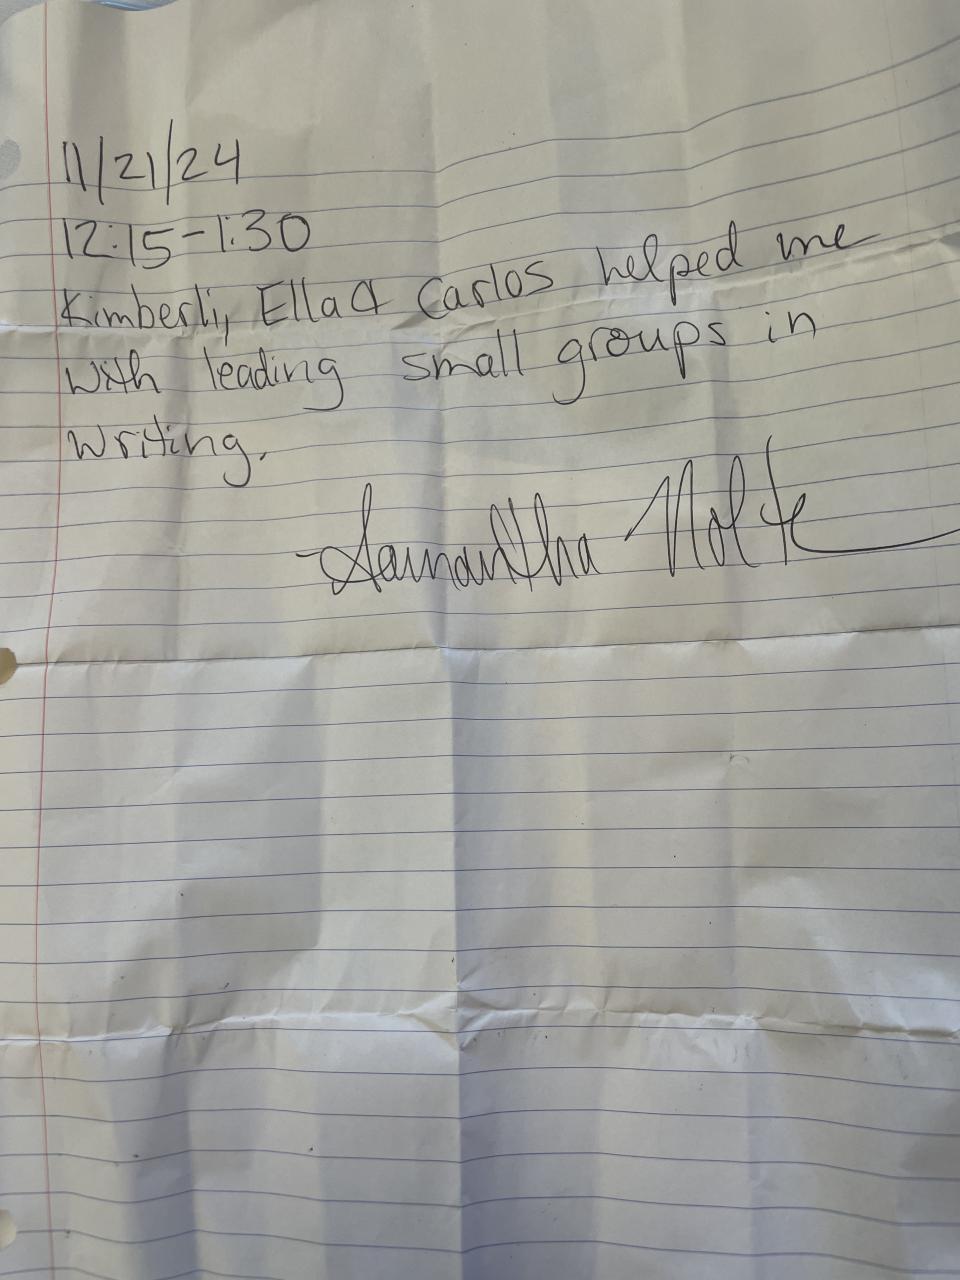 11/21/24
12:15-1:30
Kimberli, Ella & Carlos helped me
with leading small groups in
writing.
-Samantha Nolte